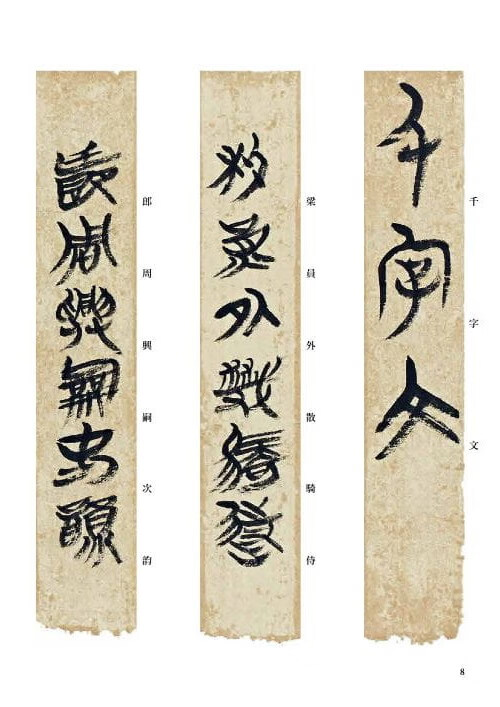 千字文
梁員外散騎侍
郎周興嗣次韵
8